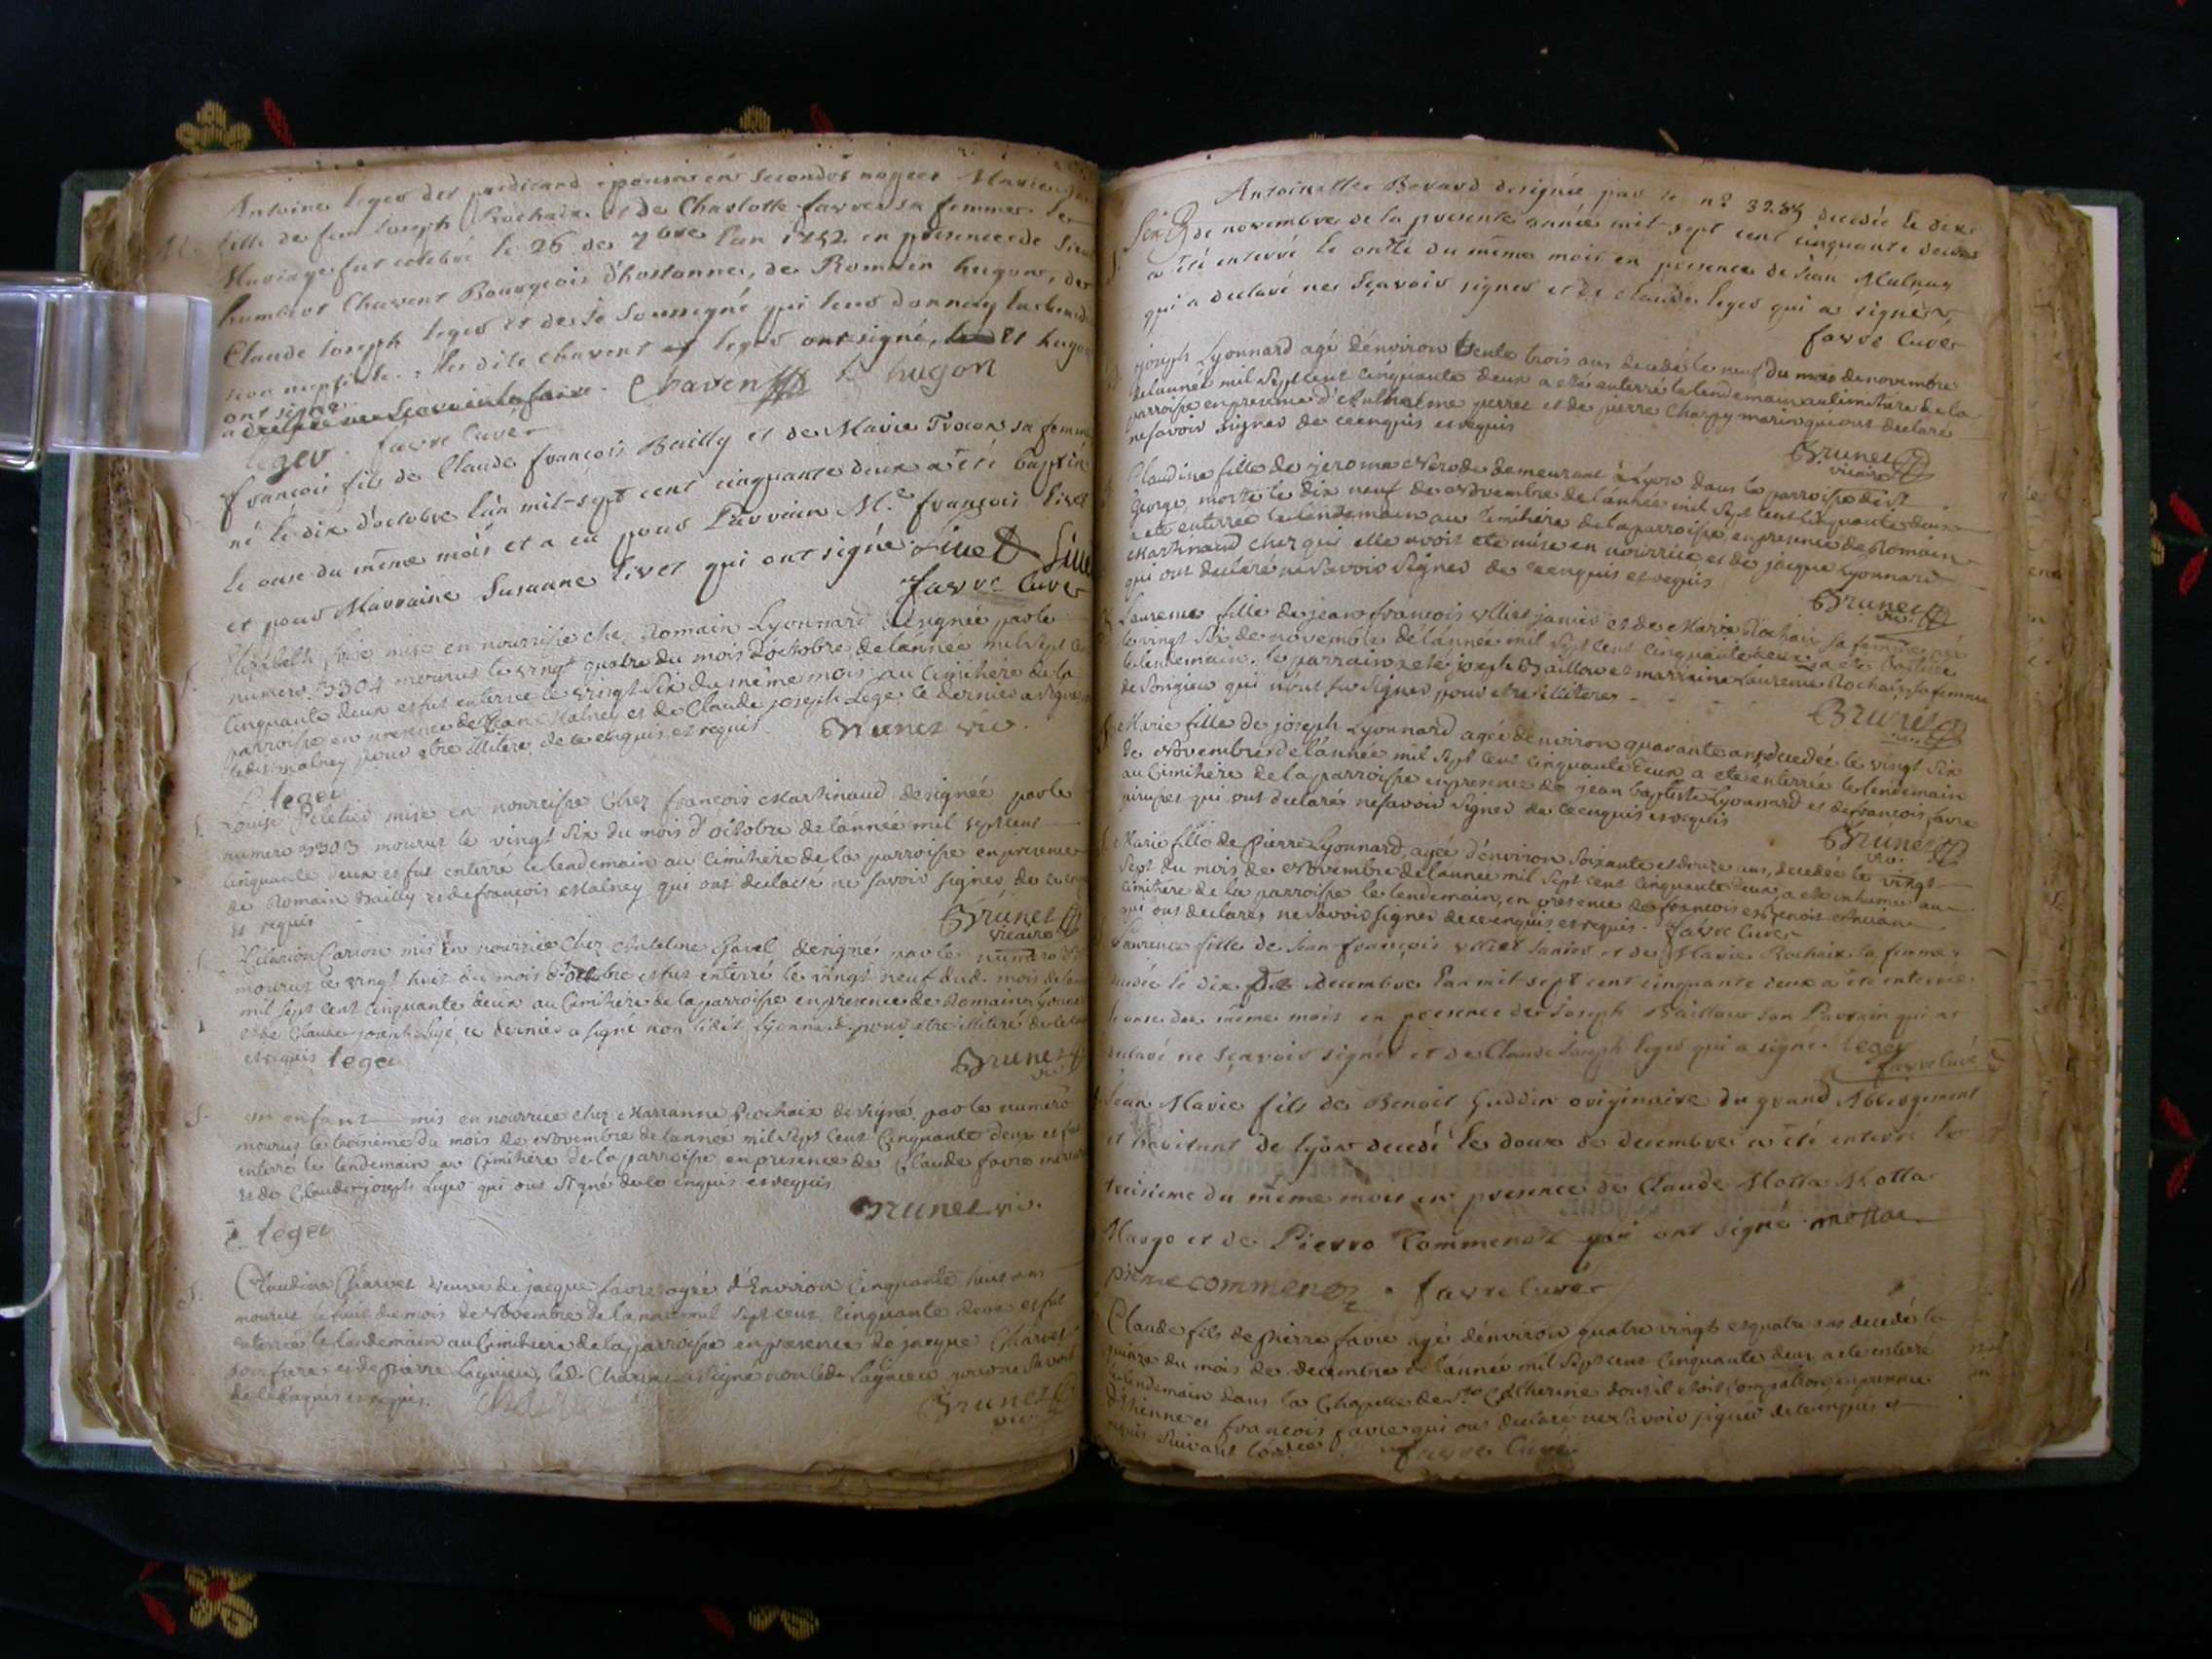 Antoine leger dit predicard epousa en secondes nopces Marie
fille de feu Joseph Rochaix et de Charlotte favre sa femme. Le
Mariage fut celebré le 26 de 7bre l'an 1752 en presence de Sieur
humbert Chavent Bourgeois d'hostonne, de Romain hugon, de
Claude Joseph leger et de je soussigné qui leur donnay la bened
tion nuptiale. Lesdits Chavent leger ont signé, et hugon
ont signé
Chavent hugon
leger favre Curé
françois fils de Claude françois Bailly et de Marie Trocon sa femme
né le dix d'octobre l'an mil-sept cent cinquante deux a été baptisé
le onze du même mois et a eu pour Parrain Mr. françois livet
et pour Marraine Susanne livet qui ont signé. Livet
favre Curé
Elizabeth mise en nourrise chez Romain Lyonnard designée par le
numero 3304 mourut le vingt quatre du mois d'octobre de lánnée mil sept cent
Cinquante deux et fut enterrée le vingt six du meme mois au Cimithere de la
parroisse en presence de Jean Malney et de Claude joseph Lege le dernier a signé
ledit malney pour etre illitere de ce enquis et requis Brunet vic.
leger
Louise mise en nourrisse Chez francois Martinaud designée par le
numero 3303 mourut le vingt six du mois d'octobre de lánnée mil sept cent
Cinquante deux et fut enterré le lendemain au Cimithere de la parroisse en presence
de Romain Bailly et de francois Malney qui ont declaré ne savoir signer de ce enquis
et requis
Brunet
vicaire
Hilarion Carion mis en nourrice Chez Antelme Ravel designé par le numero
mourut le vingt huit du mois d'octobre et fut enterré le vingt neuf dud. mois de lannée
mil sept cent Cinquante deux au Cimithere de la parroisse en presence de Romain Lyonnard
et de Claude joseph Lege ce dernier a signé non ledit Lyonnard pour etre illiteré de ce enquis
et requis leger
Brunet
vic
un enfant mis en nourrice chez Marianne Rochaix designé par le numero
mourut le troisieme du mois de Novembre de lannée mil sept Cent Cinquante deux et fut
enterré le lendemain au Cimithere de la parroisse en presence de Claude favre
et de Claude joseph Leger qui ont signé de ce enquis et requis
Brunet vic.
leger
Claudine Charvet veuve de jacque favre agée d'Environ Cinquante huit ans
mourut le huit du mois de Novembre de lannée mil sept cent Cinquante deux et fut
enterrée le lendemain au Cimithere de la parroisse en presence de jacque Charvet
son frere et de pierre Lagnieu, led. Charvet a signé non led. Lagnieu pour ne savoir
de ce enquis et requis.
Brunet
vic
Antoinette Bavard designée par le n° 3284 decedée le dix
de novembre de la presente année mil-sept cent cinquante deux
a été enterré le onze du même mois en presence de Jean Malnay
qui a declaré ne sçavoir signer et de Claude leger qui a signé
favre Curé
joseph Lyonnard agé d'environ trente trois ans decedé le neuf du mois de novembre
de lannée mil sept cent cinquante deux a eté enterré le lendemain au Cimithere de la
parroisse en presence d'Anthelme perret et de pierre Charpy marin qui ont declaré
ne savoir signer de ce enquis et requis
Brunet
vicaire
Claudine fille de jerome Nerode demeurant à Lyon dans la parroisse de St
George, morte le dix neuf de Novembre de lánnée mil sept cent Cinquante deux
a eté enterrée le lendemain au Cimithere de la parroisse, en presence de Romain
Martinaud chez qui elle avoit eté mise en nourrice, et de jacque Lyonnard
qui ont declaré ne savoir signer de ce enquis et requis
Brunet
vic
Laurence fille de jean francois Ulliet janier et de Marie Rochaix sa femme née
le vingt six de novembre de lánnée mil sept cent Cinquante deux a eté baptisée
le lendemain. le parrain a eté joseph Baillou et marraine Laurence Rochaix sa femme
de Songieu qui n'ont su signer pour etre illiteres
Brunet
vic
Marie fille de joseph Lyonnard agée d'environ quarante ans, decedée le vingt six
de Novembre de lánnée mil sept cent Cinquante deux a eté enterrée le lendemain
au Cimithere de la parroisse en presence de jean baptiste Lyonnard et de francois favre
qui ont declaré ne savoir signer de ce enquis et requis
Brunet
vic
Marie fille de pierre Lyonnard, agée d'énviron soixante et douze ans, decedée le vingt
sept du mois de Novembre de lannée mil sept cent Cinquante deux a eté inhumée au
Cimithere de la parroisse le lendemain, en presence de francois et Benoit
qui ont declarés ne savoir signer de ce enquis et requis. favre Curé
Laurence fille de jean françois Ulliet Janier et de Marie Rochaix sa femme
decedée le dix decembre l'an mil-sept cent cinquante deux a été enterrée
le onze du même mois en presence de Joseph Baillou son Parrain qui a
declaré ne sçavoir signer et de Claude Joseph leger qui a signé. leger
favre Curé
Jean Marie fils de Benoit Guddin originaire du grand Abbergement
et habitant de lyon decedé le douze de decembre a été enterré le
treisieme du même mois en presence de Claude Motta
Margo et de Pierre Commenot qui ont signé. motta
pierre commenot favre Curé
Claude fils de pierre favre agé d'énviron quatre vingts et quatre ans decedé le
quinze du mois de decembre de lánnée mil sept cent Cinquante deux a eté enterré
le lendemain dans la Chapelle de Ste Catherine dont il etoit Compatron, en presence
d'Etienne et francois favre qui ont declaré ne savoir signer de ce enquis et
requis suivant l'ordce favre Curé